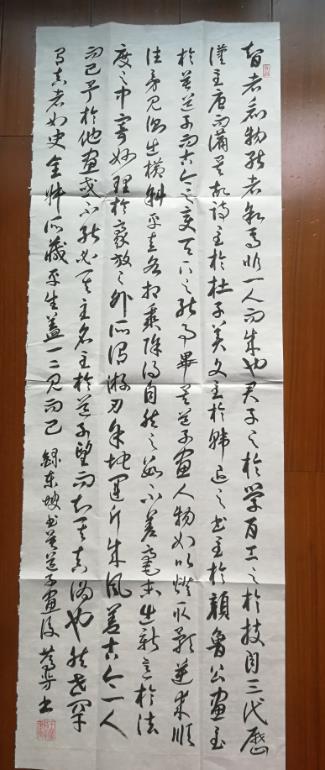 智者創物能者述焉非一人而成也君子之於學百工之於技自三代歷
漢至唐而備矣故詩至於杜子美文至於韓退之書至於顏魯公畫至
於吳道子而古今之變天下之能事畢矣道子畫人物如以燈取影逆來順
往旁見側出橫斜平直各相乘除得自然之數不差毫末出新意於法
度之中寄妙理於豪放之外所謂游刃餘地運斤成風蓋古今一人
而已予於他畫或不能必其主名至於道子望而知其真偽也然世罕
有真者如史全叔所藏平生蓋一二見而已 錄東坡書吳道子畫後 書